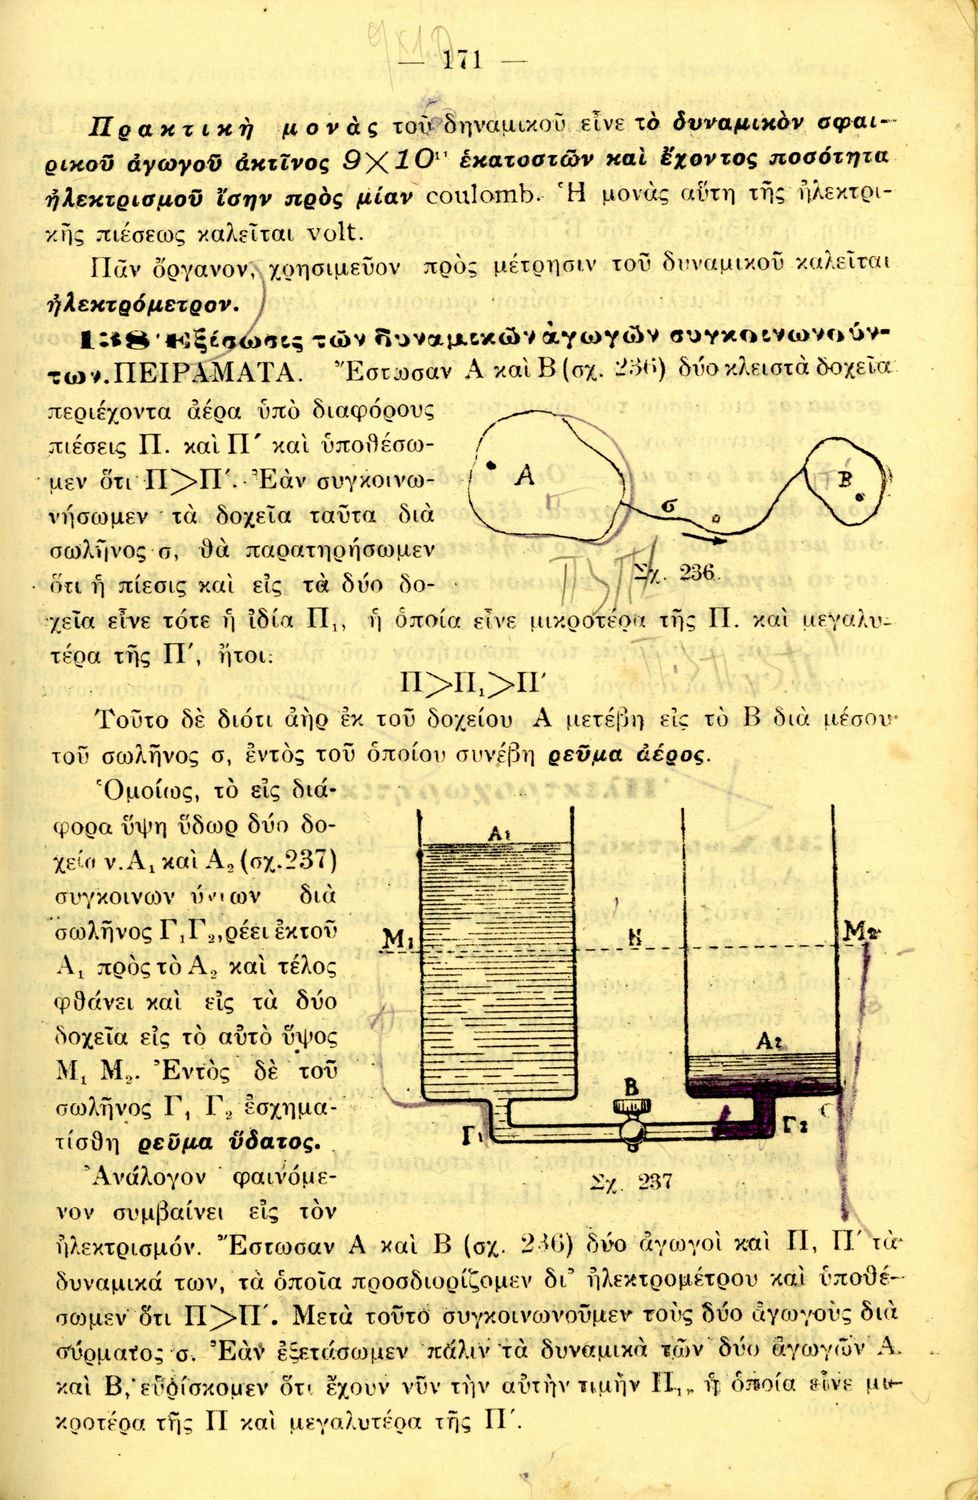 — 171 —
Πρακτικὴ μονὰς τοῦ δηναμικοῦ εἶνε τὸ δυναμικὸν σφαι-
ρικοῦ ἀγωγοῦ ἀκτῖνος 9×10¹¹ ἑκατοστῶν καὶ ἔχοντος ποσότητα
ἠλεκτρισμοῦ ἴσην πρὸς μίαν coulomb. Ἡ μονὰς αὕτη τῆς ἠλεκτρι-
κῆς πιέσεως καλεῖται volt.
Πᾶν ὄργανον, χρησιμεῦον πρὸς μέτρησιν τοῦ δυναμικοῦ καλεῖται
ἠλεκτρόμετρον.
138 Ἐξίσωσις τῶν δυναμικῶν ἀγωγῶν συγκοινωνούν-
των. ΠΕΙΡΑΜΑΤΑ. Ἔστωσαν Α καὶ Β (σχ. 236) δύο κλειστὰ δοχεῖα
περιέχοντα ἀέρα ὑπὸ διαφόρους
πιέσεις Π. καὶ Π΄ καὶ ὑποθέσω-
μεν ὅτι Π>Π΄. Ἐὰν συγκοινω-
νήσωμεν τὰ δοχεῖα ταῦτα διὰ
σωλῆνος σ, θὰ παρατηρήσωμεν
ὅτι ἡ πίεσις καὶ εἰς τὰ δύο δο-
χεῖα εἶνε τότε ἡ ἰδία Π₁, ἡ ὁποία εἶνε μικροτέρα τῆς Π. καὶ μεγαλυ-
τέρα τῆς Π΄, ἤτοι:
Α
σ
Β
Σχ. 236.
Π>Π΄
Π>Π₁>Π΄
Τοῦτο δὲ διότι ἀὴρ ἐκ τοῦ δοχείου Α μετέβη εἰς τὸ Β διὰ μέσου
τοῦ σωλῆνος σ, ἐντὸς τοῦ ὁποίου συνέβη ρεῦμα ἀέρος.
Ὁμοίως, τὸ εἰς διά-
φορα ὕψη ὕδωρ δύο δο-
χείων. Α₁ καὶ Α₂ (σχ.237)
συγκοινωνούντων διὰ
σωλῆνος Γ₁Γ₂, ρέει ἐκ τοῦ
Α₁ πρὸς τὸ Α₂ καὶ τέλος
φθάνει καὶ εἰς τὰ δύο
δοχεῖα εἰς τὸ αὐτὸ ὕψος
Μ₁ Μ₂. Ἐντὸς δὲ τοῦ
σωλῆνος Γ₁ Γ₂ ἐσχημα-
τίσθη ρεῦμα ὕδατος.
Ἀνάλογον φαινόμε-
νον συμβαίνει εἰς τὸν
Α₁
Μ₁
Ν
Μ₂
Α₂
Β
Γ₁
Γ₂
Σχ. 237
ἠλεκτρισμόν. Ἔστωσαν Α καὶ Β (σχ. 236) δύο ἀγωγοὶ καὶ Π, Π΄ τὰ
δυναμικά των, τὰ ὁποῖα προσδιορίζομεν δι᾽ ἠλεκτρομέτρου καὶ ὑποθέ-
σωμεν ὅτι Π>Π΄. Μετὰ τοῦτο συγκοινωνοῦμεν τοὺς δύο ἀγωγοὺς διὰ
σύρματος σ. Ἐὰν ἐξετάσωμεν πάλιν τὰ δυναμικὰ τῶν δύο ἀγωγῶν Α
καὶ Β, εὑρίσκομεν ὅτι ἔχουν νῦν τὴν αὐτὴν τιμὴν Π₁, ἡ ὁποία εἶνε μι-
κροτέρα τῆς Π καὶ μεγαλυτέρα τῆς Π΄.